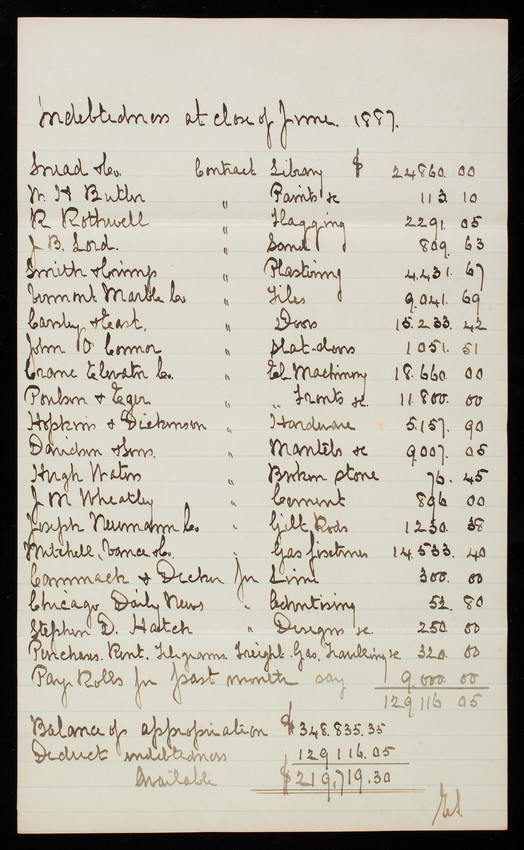 Indebtedness at close of June 1887.
Snead & Co. Contract Library $ 24860.00
W. H Butler " Paints &c 113.10
R Rothwell " Flagging 2291.05
J. B. Lord. " Sand 869.63
Smith & Crimp " Plastering 4.431.67
Vermont Marble Co " Tiles 9.041.69
Carsley & East. " Doors 15.233.42
John O'Connor " Slat-doors 1051.51
Crane Elevator Co. " El. Machinery 18.660.00
Poulson & Eger " " Fronts &c. 11.800.00
Hopkins & Dickinson " Hardware 5.157.90
Davidson & Sons. " Mantels &c 9.007.05
Hugh Waters " Broken Stone 76.45
J. M. Wheatley " Cement 896 00
Joseph Neumann Co. " Gilt Rods 1250.38
Mitchell, Vance & Co. " Gas fixtures 14.533.40
Cammack & Decker for Lime 300.00
Chicago Daily News " Advertising 52.80
Stephen D. Hatch " Designs &c. 250.00
Purchases. Rent. Telegrams. Freight. Gas, Travelling &c 320.00
Pay Rolls for past month say 9.000 00
129116 05
Balance of appropriation $348.835.35
Deduct indebtedness 129116.05
Available $219,719.30